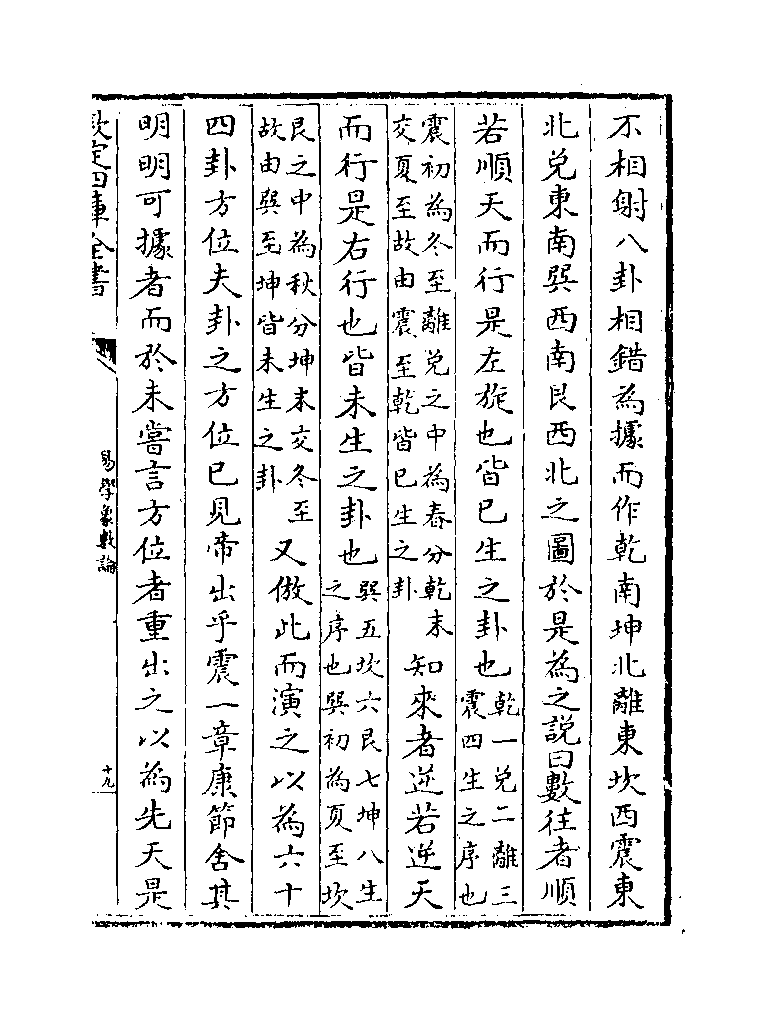 不相射八卦相錯為據而作乾南坤北離東坎西震東
北兌東南巽西南艮西北之圖於是為之說曰數往者順
若順天而行是左旋也皆已生之卦也乾一兌二離三
震四生之序也
震初為冬至離兌之中為春分乾末
交夏至故由震至乾皆已生之卦
知來者逆若逆天
而行是右行也皆未生之卦也巽五坎六艮七坤八生
之序也巽初為夏至坎
艮之中為秋分坤末交冬至
故由巽至坤皆未生之卦
又倣此而演之以為六十
四卦方位夫卦之方位已見帝出乎震一章康節舍其
明明可據者而於未嘗言方位者重出之以為先天是
欽定四庫全書
易學象數論
十九